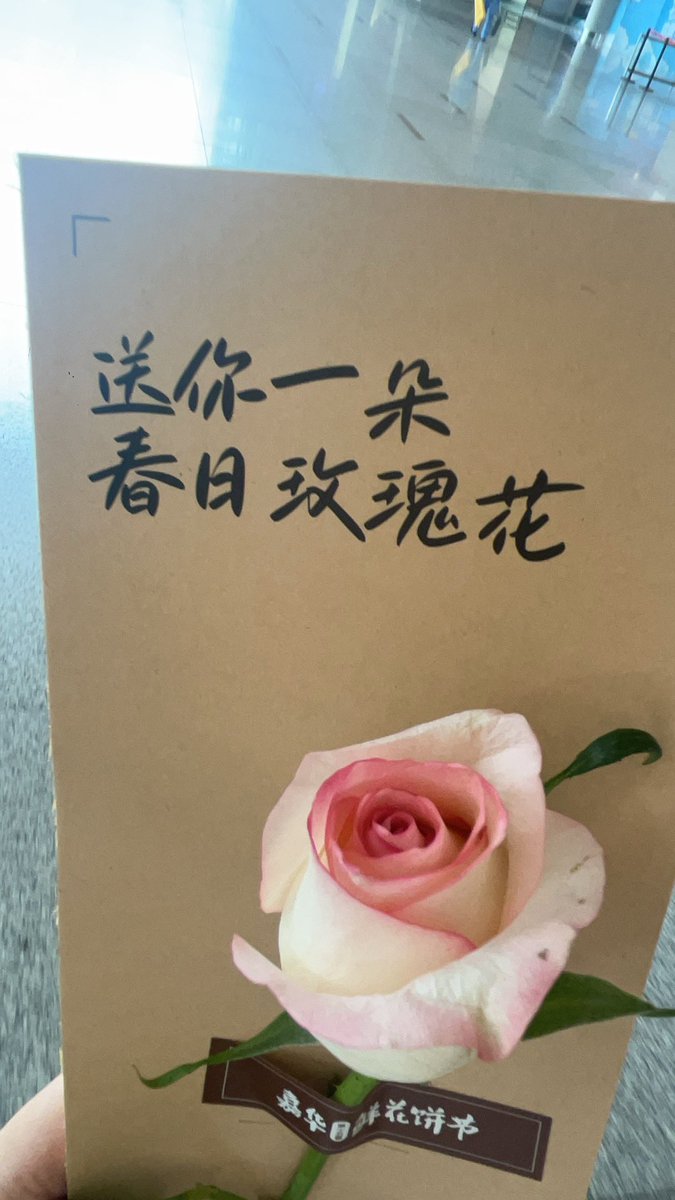 送你一朵
春日玫瑰花
嘉华鲜花饼节